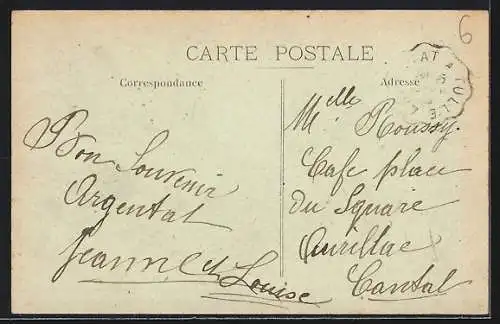 6
CARTE POSTALE
Correspondance
Adresse
AT A TULLE
Bon Souvenir
Argentat
Jeanne et Louise
Melle Roussy
Cafe place
du Square
Aurillac
Cantal